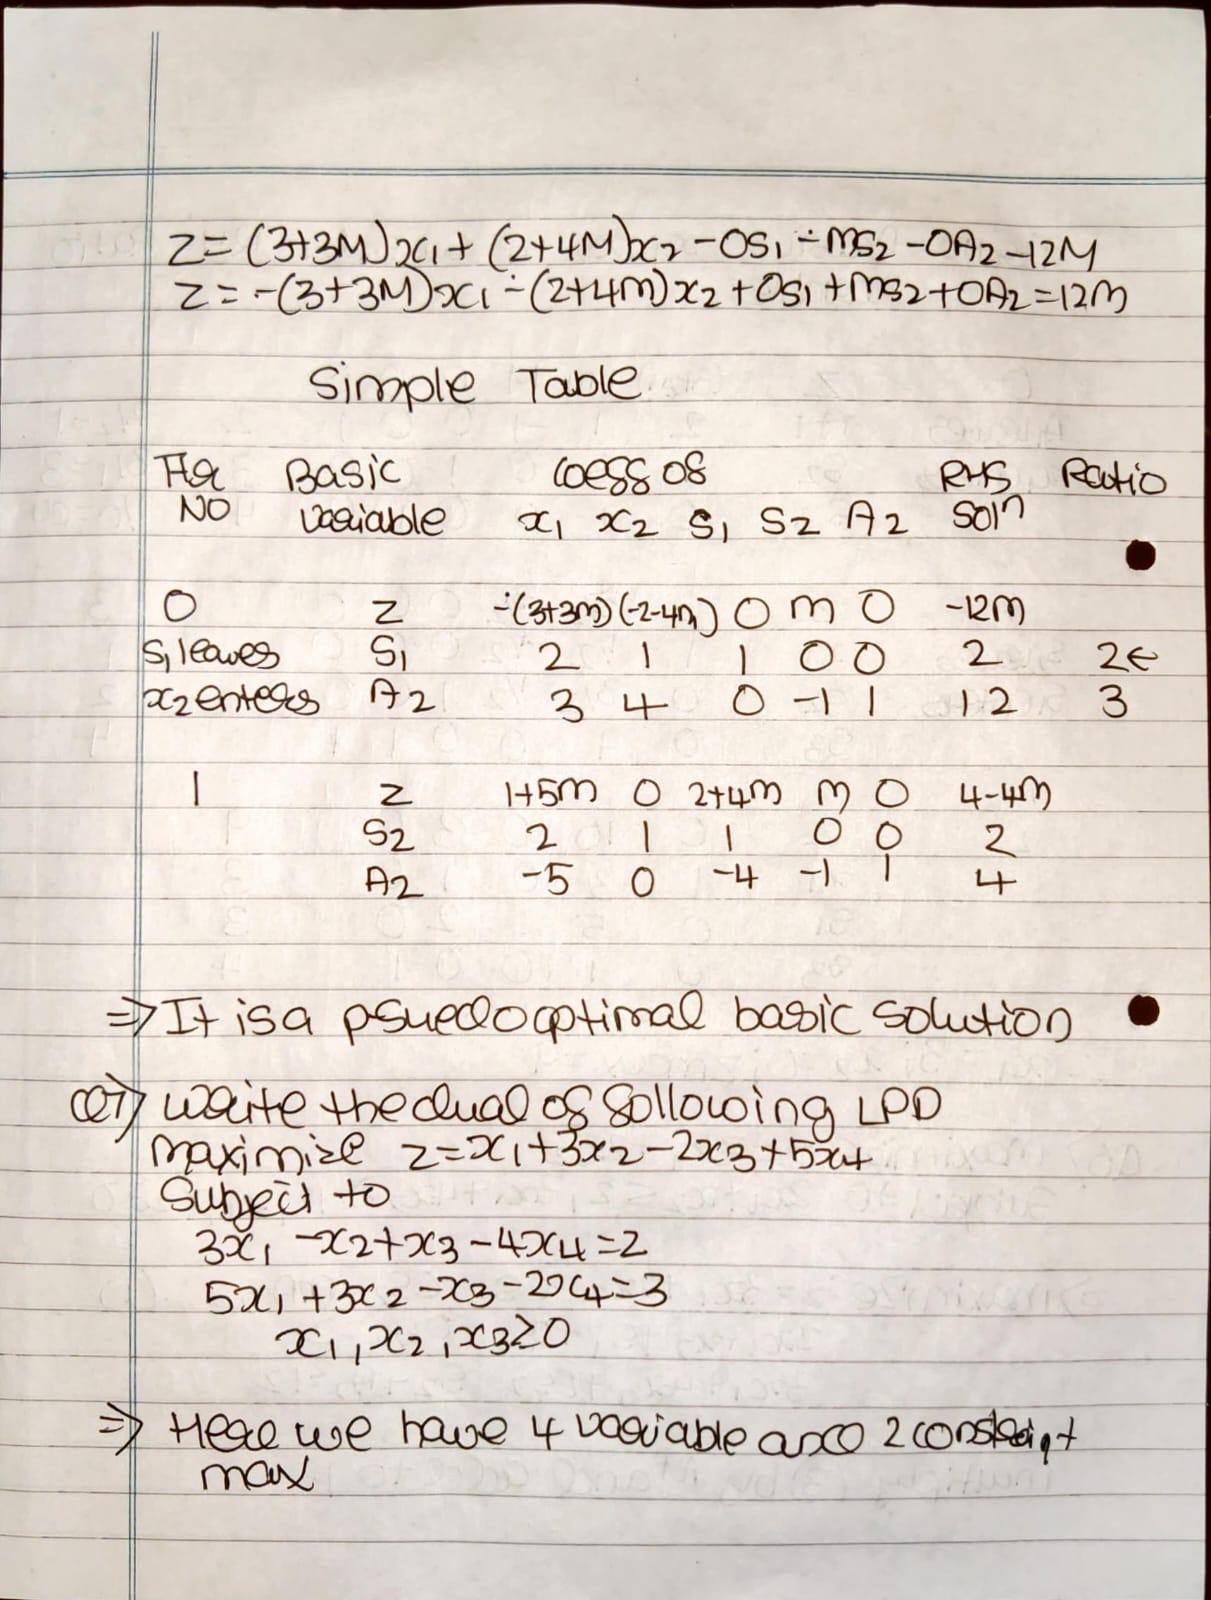 Z = (3+3M)x₁ + (2+4M)x₂ - 0S₁ - MS₂ - 0A₂ - 12M
Z = -(3+3M)x₁ - (2+4M)x₂ + 0S₁ + MS₂ + 0A₂ = 12M
Simple Table
Itr Basic coeff of RHS Ratio
NO variable x₁ x₂ S₁ S₂ A₂ Solⁿ
0 Z -(3+3M) (-2-4M) 0 M 0 -12M
S₁ leaves S₁ 2 1 1 0 0 2 2←
x₂ enters A₂ 3 4 0 -1 1 12 3
1 Z 1+5M 0 2+4M M 0 4-4M
S₂ 2 1 1 0 0 2
A₂ -5 0 -4 -1 1 4
⇒ It is a psuedo optimal basic solution
Q7) Write the dual of following LPP
Maximize Z = x₁ + 3x₂ - 2x₃ + 5x₄
Subject to
3x₁ - x₂ + x₃ - 4x₄ = 2
5x₁ + 3x₂ - x₃ - 2x₄ = 3
x₁, x₂, x₃ ≥ 0
⇒ Here we have 4 variable and 2 constraint
max